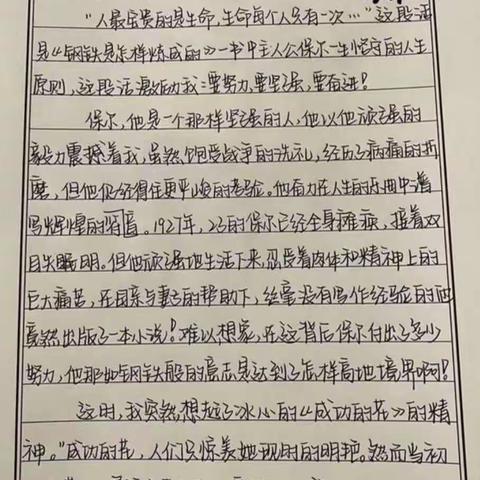 “人最宝贵的是生命,生命每个人只有一次…”这段话
是《钢铁是怎样炼成的》一书中主人公保尔一生坚守的人生
原则,这段话激励我:要努力,要坚强,要奋进!
保尔,他是一个那样坚强的人,他以他顽强的
毅力震撼着我,虽然饱受战争的洗礼,经历了病痛的折
磨,但他仍经得住更严峻的考验。他奋力在人生的舞曲中谱
写辉煌的篇章。1927年,23的保尔已经全身瘫痪,接着双
目失明。但他顽强地生活下来,忍受着肉体和精神上的
巨大痛苦,在母亲与妻子的帮助下,丝毫没有写作经验的他
竟然出版了一本小说!难以想象,在这背后保尔付出了多少
努力,他那如钢铁般的意志是达到了怎样高地境界啊!
这时,我突然想起了冰心的《成功的花》的精
神。“成功的花,人们只惊羡她现时的明艳。然而当初